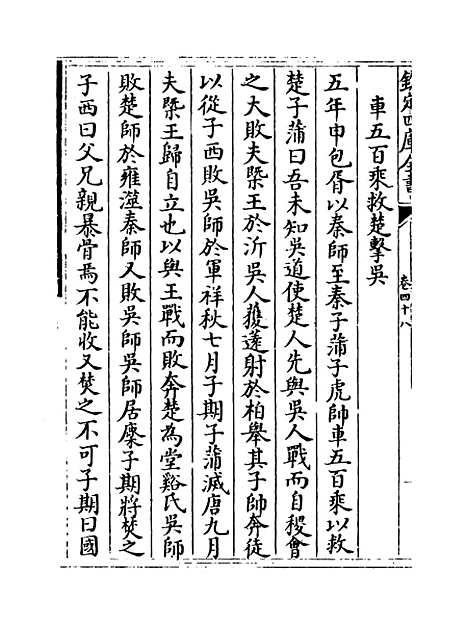 欽定四庫全書
卷四十八
車五百乘救楚擊吳
五年申包胥以秦師至秦子蒲子虎帥車五百乘以救
楚子蒲曰吾未知吳道使楚人先與吳人戰而自稷會
之大敗夫槩王於沂吳人獲薳射於柏舉其子帥奔徒
以從子西敗吳師於軍祥秋七月子期子蒲滅唐九月
夫槩王歸自立也以與王戰而敗奔楚為堂谿氏吳師
敗楚師於雍澨秦師又敗吳師吳師居麇子期將焚之
子西曰父兄親暴骨焉不能收又焚之不可子期曰國